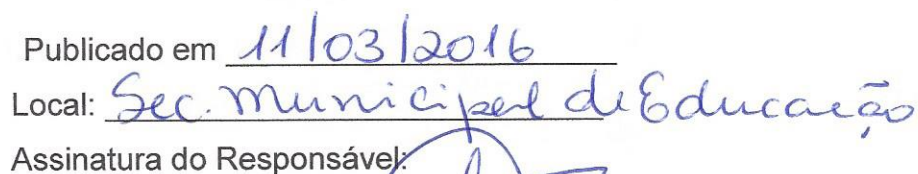 Publicado em 11/03/2016
Local: Sec. Municipal de Educação
Assinatura do Responsável: